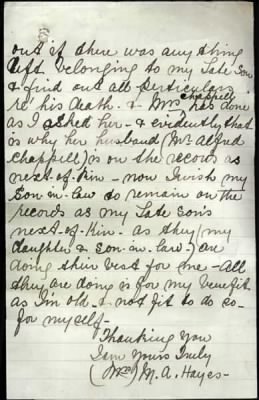 out if there was any thing
left belonging to my Late Son
& find out all perticulars
re his death. & Mrs chappell has done
as I asked her - & evidently that
is why her husband (Mr Alfred
chappill) is on the records as
next-of-Kin - now I wish my
Son-in-law to remain on the
records as my Late sons
next-of-Kin. as they (my
daughter & son-in-law-) are
doing thier best for me - All
they are doing is for my benefit
as I'm old - & not fit to do so-
for myself -
Thanking You
I am Yours Truly
(Mrs) M. A. Hayes -